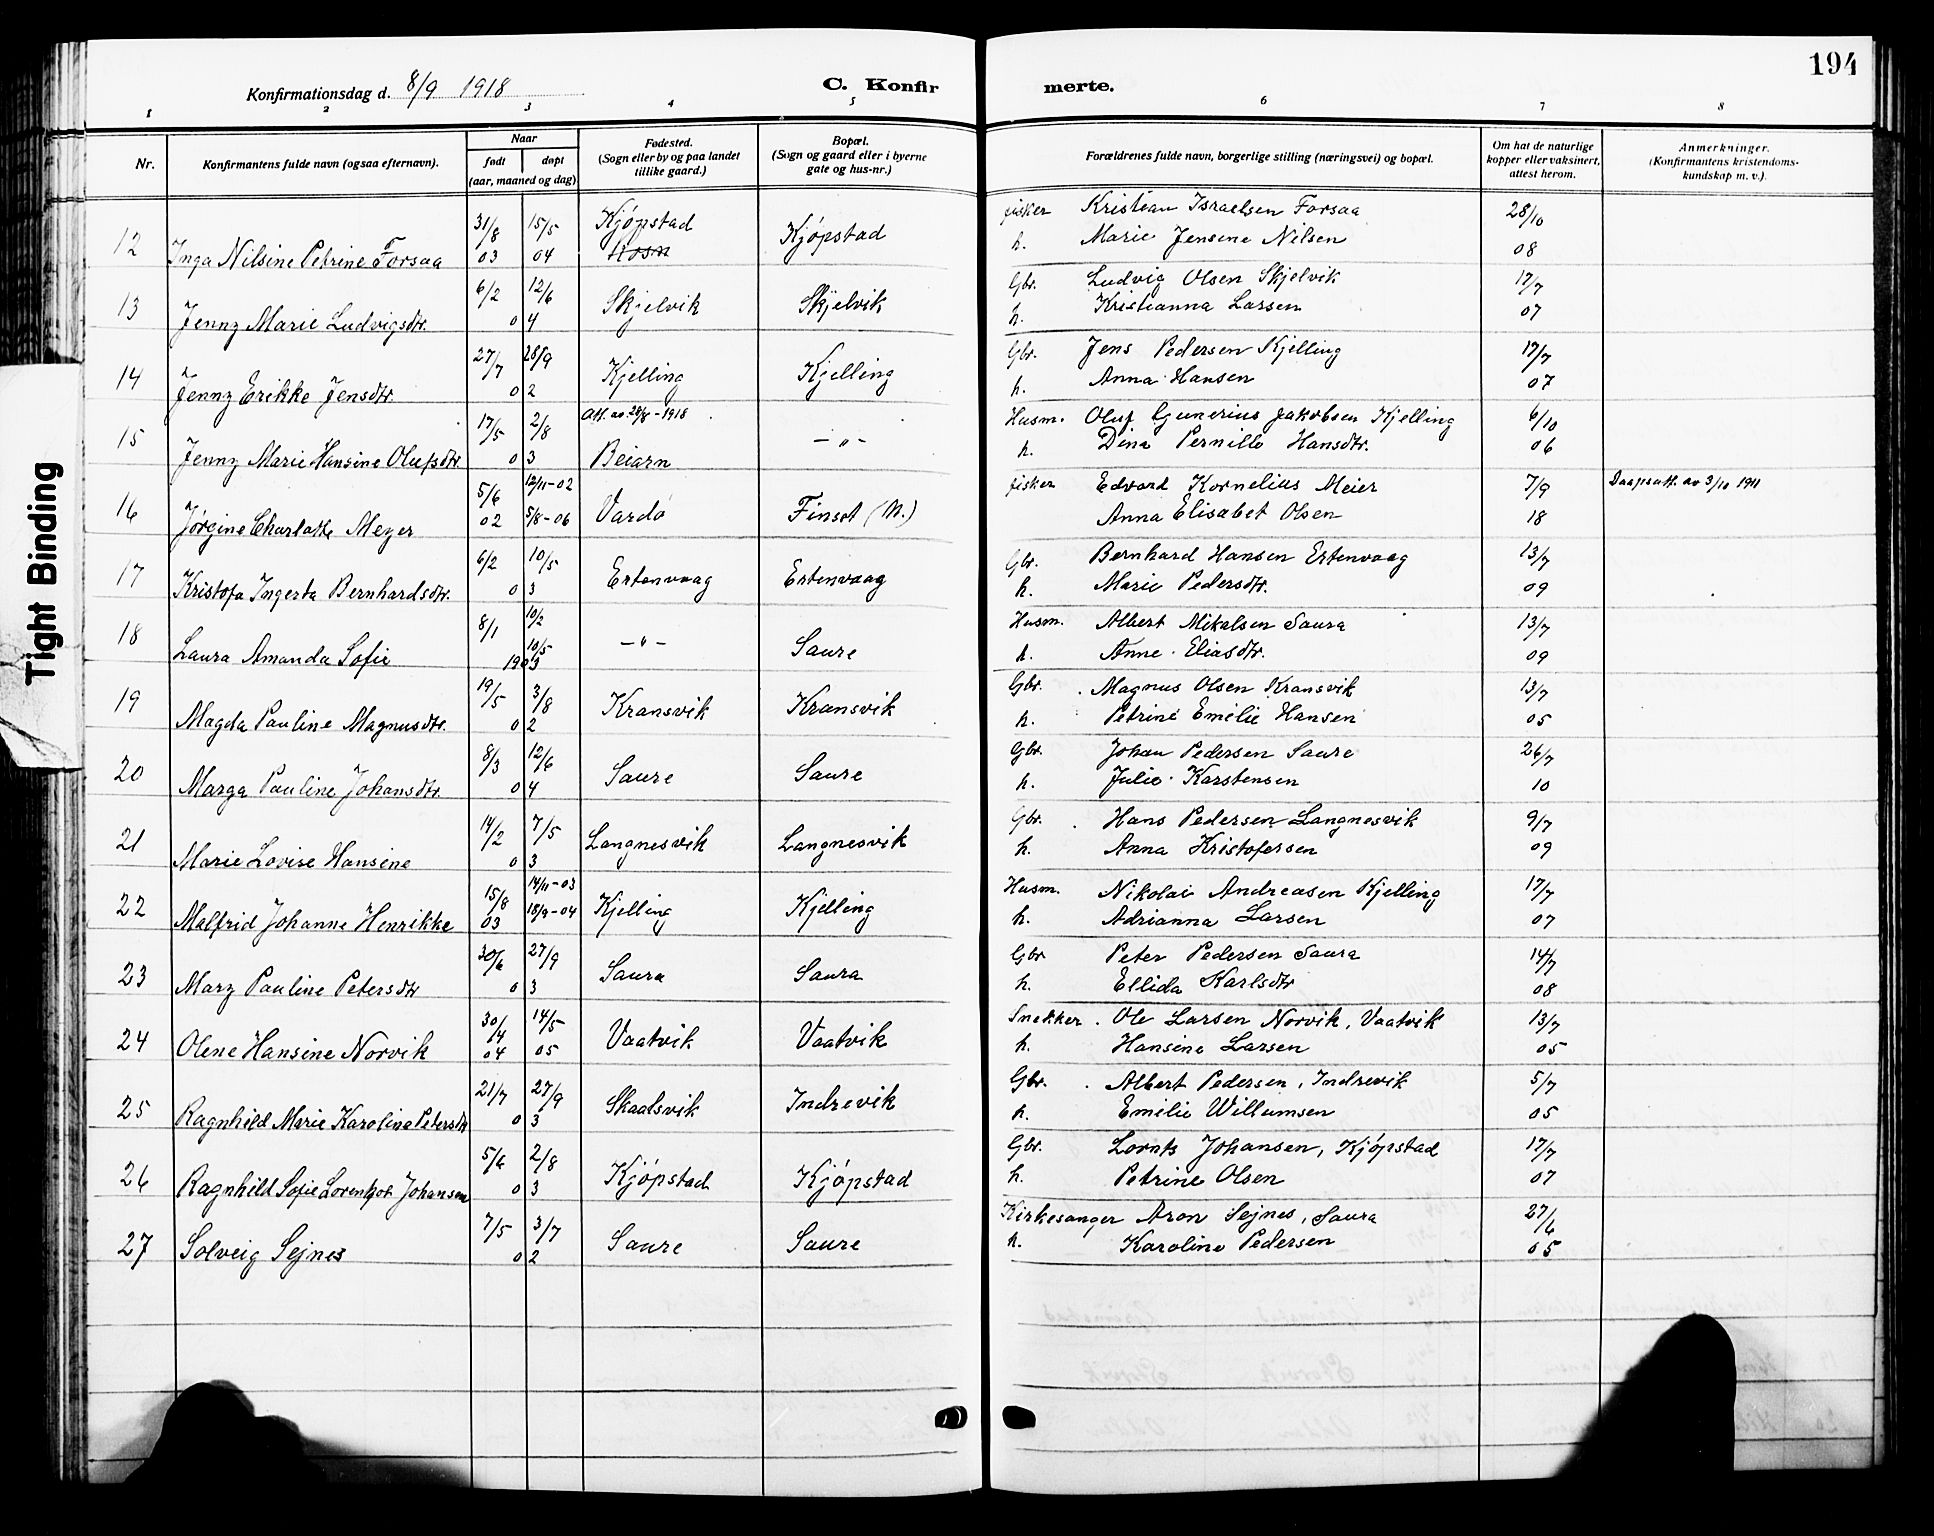 194
Konfirmationsdag d. 8/9 1918
C. Konfir
merte.
1 2 3 4 5 6 7 8
Nr.
Konfirmantens fulde navn (ogsaa efternavn).
Naar
født døpt
(aar, maaned og dag)
Fødested.
(Sogn eller by og paa landet
tillike gaard.)
Bopæl.
(Sogn og gaard eller i byerne
gate og hus-nr.)
Forældrenes fulde navn, borgerlige stilling (næringsvei) og bopæl.
Om hat de naturlige
kopper eller vaksinert,
attest herom.
Anmerkninger.
(Konfirmantens kristendoms-
kundskap m. v.)
31/8 15/5 Kjøpstad fisker Kristian Israelsen Forsaa 28/10
12 Inga Nilsine Petrine Forsaa 03 04 Kjøpstad h. Marie Jensine Nilsen 08
6/2 12/6 Gbr. Ludvig Olsen Skjelvik 17/7
13 Jenny Marie Ludvigsdtr. 04 Skjelvik Skjelvik h. Kristianna Larsen 07
27/7 28/9 Gbr. Jens Pedersen Kjelling 17/7
14 Jenny Erikke Jensdtr. 02 Kjelling Kjelling h. Anna Hansen 07
17/5 2/8 Att. av 28/8-1918 Husm. Oluf Gunerius Jakobsen Kjelling 6/10
15 Jenny Marie Hansine Olufsdtr. 03 Beiarn -"- h. Dina Pernille Hansdtr. 06
5/6 12/11-02 fisker Edvard Kornelius Meier 7/9 Daapsatt. av 3/10 1911
16 Jørgine Charlotte Meyer 02 5/8-06 Vardø Finset (M.) Anna Elisabet Olsen 18
6/2 10/5 Gbr. Bernhard Hansen Ertenvaag 13/7
17 Kristofa Ingerta Bernhardsdtr. 03 Ertenvaag Ertenvaag h. Marie Pedersdtr. 09
8/1 10/2 Husm. Albert Mikalsen Saura 13/7
18 Laura Amanda Sofie 10/5 1903 -"- Saure h. Anne Eliasdtr. 09
19/5 3/8 Gbr. Magnus Olsen Kransvik 13/7
19 Magda Pauline Magnusdtr. 02 Kransvik Kransvik h. Petrine Emilie Hansen 05
8/3 12/6 Gbr. Johan Pedersen Saure 26/7
20 Marga Pauline Johansdtr. 04 Saure Saure h. Julie Karstensen 10
14/2 7/5 Gbr. Hans Pedersen Langnesvik 9/7
21 Marie Lovise Hansine 03 Langnesvik Langnesvik h. Anna Kristofersen 09
15/8 14/11-03 Husm. Nikolai Andreasen Kjelling 17/7
22 Malfrid Johanne Henrikke 03 18/9-04 Kjelling Kjelling h. Adrianna Larsen 07
30/6 27/9 Gbr Peter Pedersen Saura 14/7
23 Mary Pauline Petersdtr 03 Saura Saura h. Ellida Karlsdtr 08
30/14 14/5 Snekker. Ole Larsen Norvik, Vaatvik 13/7
24 Olene Hansine Norvik 04 05 Vaatvik Vaatvik h. Hansine Larsen 05
21/7 27/9 Gbr. Albert Pedersen, Indrevik 5/7
25 Ragnhild Marie Karoline Petersdtr 03 Skaalsvik Indrevik h. Emilie Willumsen 05
5/6 2/8 Gbr. Lornts Johansen, Kjøpstad 17/7
26 Ragnhild Sofie Johansen 03 Kjøpstad Kjøpstad h. Petrine Olsen 07
7/5 3/7 Kirkesanger Aron Sejnes, Saura 27/6
27 Solveig Sejnes 02 Saure Saure h. Karoline Pedersen 05
Tight Binding